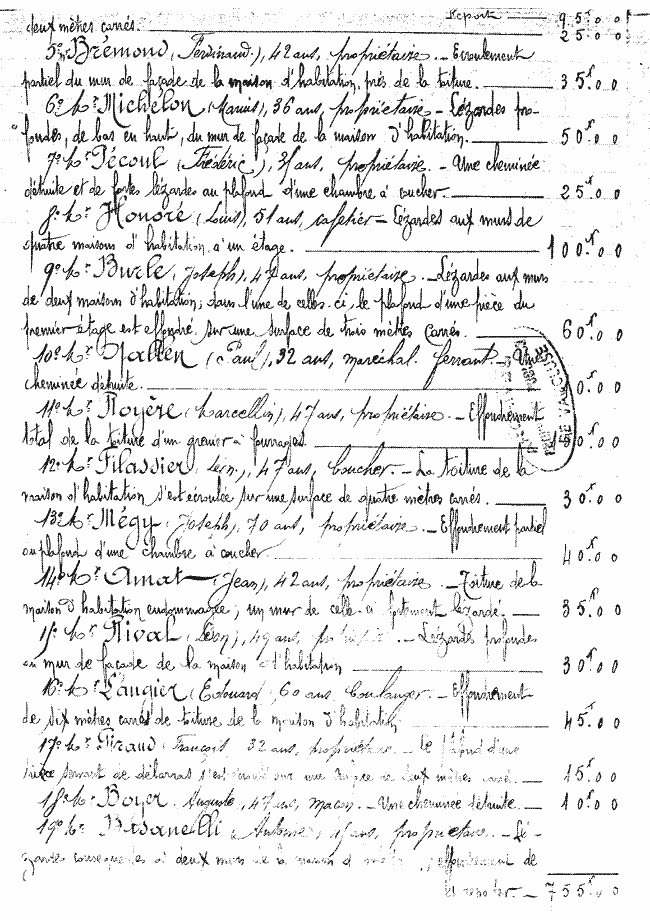 Report 95f00
deux mètres carrés. 25.00
5° Brémond (Ferdinand), 42 ans, propriétaire. - Ecroulement
partiel du mur de façade de la maison d'habitation, près de la toiture. 35f.00
6° Mr Michelon (Marius), 36 ans, propriétaire - Lézardes pro-
fondes, de bas en haut, du mur de façade de la maison d'habitation. 50f.00
7° Mr Pécoul (Frédéric), ans, propriétaire. - Une cheminée
détruite et de fortes lézardes au plafond d'une chambre à coucher. 25f.00
8° Mr Honoré (Louis), 51 ans, cafetier - Lézardes aux murs de
quatre maisons d'habitation, à un étage. 100f.00
9° Mr Burle (Joseph), 47 ans, propriétaire. - Lézardes aux murs
de deux maisons d'habitation; dans l'une de celles-ci, le plafond d'une pièce du
premier étage est effondré sur une surface de trois mètres carrés. 60f.00
10° Mr (Paul), 32 ans, maréchal-ferrant. - Une
cheminée détruite. 0f.00
11° Mr Royère (Marcellin), 47 ans, propriétaire. - Effondrement
total de la toiture d'un grenier à fourrages. 0.00
12° Mr Filassier 47 ans, boucher. - La toiture de la
maison d'habitation s'est écroulée sur une surface de quatre mètres carrés. 30f.00
13° Mr Mégy (Joseph), 70 ans, propriétaire. - Effondrement partiel
au plafond d'une chambre à coucher. 40f.00
14° Mr Amat (Jean), 42 ans, propriétaire. - Toiture de la
maison d'habitation endommagée; un mur de celle-ci fortement lézardé. 35f.00
15° Mr Rival (Léon), 49 ans, propriétaire. - Lézardes profondes
au mur de façade de la maison d'habitation 30f.00
16° Mr Laugier (Edouard), 60 ans, boulanger. - Effondrement
de six mètres carrés de toiture de la maison d'habitation 45f.00
17° Mr Giraud (François 32 ans, propriétaire. - Le plafond d'une
pièce servant de débarras s'est sur une surface de deux mètres carrés. 15f.00
18° Mr Boyer Auguste, 47 ans, maçon. - Une cheminée détruite. 10f.00
19° Mr (Antoine), ans, propriétaire. - Lé-
zardes conséquentes à deux murs de la maison d' ; effondrement de
à reporter. - 755f.00